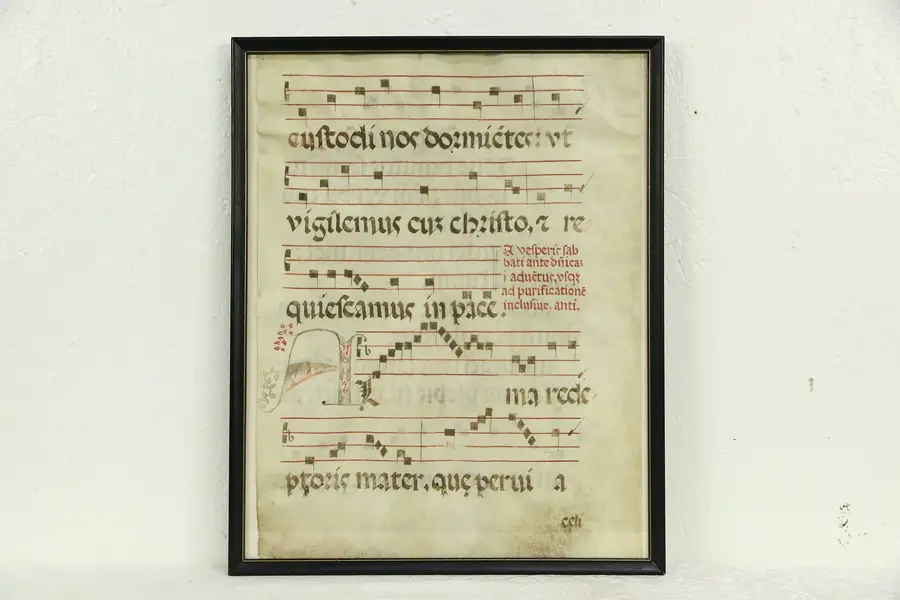 custodi nos dormiētes: vt
vigilemus cuʒ christo, ⁊ re-
quiescamus in pace.
A vesperis sab
bati ante dn̄icaʒ
i aduētus, vsqʒ
ad purificationē
inclusiue. anti.
A L ma rede-
ptoris mater, quę perui a
cęli